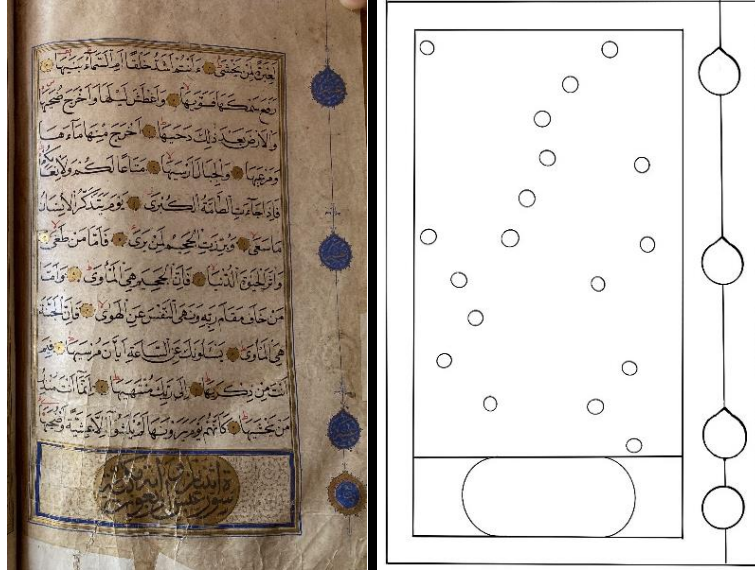 لَعِبْرَةً لِمَنْ يَخْشَى ءَاَنْتُمْ اَشَدُّ خَلْقًا اَمِ السَّمَاءُ بَنٰيهَا
رَفَعَ سَمْكَهَا فَسَوّٰيهَا وَاَغْطَشَ لَيْلَهَا وَاَخْرَجَ ضُحٰيهَا
وَالْاَرْضَ بَعْدَ ذٰلِكَ دَحٰيهَا اَخْرَجَ مِنْهَا مَاءَهَا
وَمَرْعٰيهَا وَالْجِبَالَ اَرْسٰيهَا مَتَاعًا لَكُمْ وَلِاَنْعَامِكُمْ
فَاِذَا جَاءَتِ الطَّامَّةُ الْكُبْرٰى يَوْمَ يَتَذَكَّرُ الْاِنْسَانُ
مَا سَعٰى وَبُرِّزَتِ الْجَحِيمُ لِمَنْ يَرٰى فَاَمَّا مَنْ طَغٰى
وَاٰثَرَ الْحَيٰوةَ الدُّنْيَا فَاِنَّ الْجَحِيمَ هِيَ الْمَاْوٰى وَاَمَّا
مَنْ خَافَ مَقَامَ رَبِّهِ وَنَهَى النَّفْسَ عَنِ الْهَوٰى فَاِنَّ الْجَنَّةَ
هِيَ الْمَاْوٰى يَسْئَلُونَكَ عَنِ السَّاعَةِ اَيَّانَ مُرْسٰيهَا فِيمَ
اَنْتَ مِنْ ذِكْرٰيهَا اِلٰى رَبِّكَ مُنْتَهٰيهَا اِنَّمَا اَنْتَ مُنْذِرُ
مَنْ يَخْشٰيهَا كَاَنَّهُمْ يَوْمَ يَرَوْنَهَا لَمْ يَلْبَثُوا اِلَّا عَشِيَّةً اَوْ ضُحٰيهَا
سورة عبس